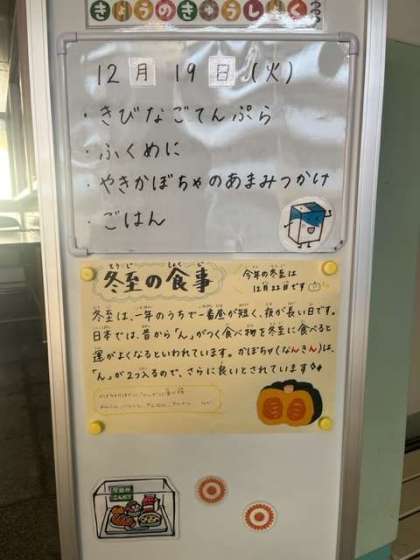 きょうのきゅうしょく
12月 19日(火)
・きびなごてんぷら
・ふくめに
・やきかぼちゃのあまみつかけ
・ごはん
冬至の食事
とうじ しょくじ
今年の冬至は
12月22日です
冬至は、一年のうちで一番昼が短く、夜が長い日です。
日本では、昔から「ん」がつく食べ物を冬至に食べると
運がよくなるといわれています。かぼちゃ(なんきん)は、
「ん」が2つ入るので、さらに良いとされています